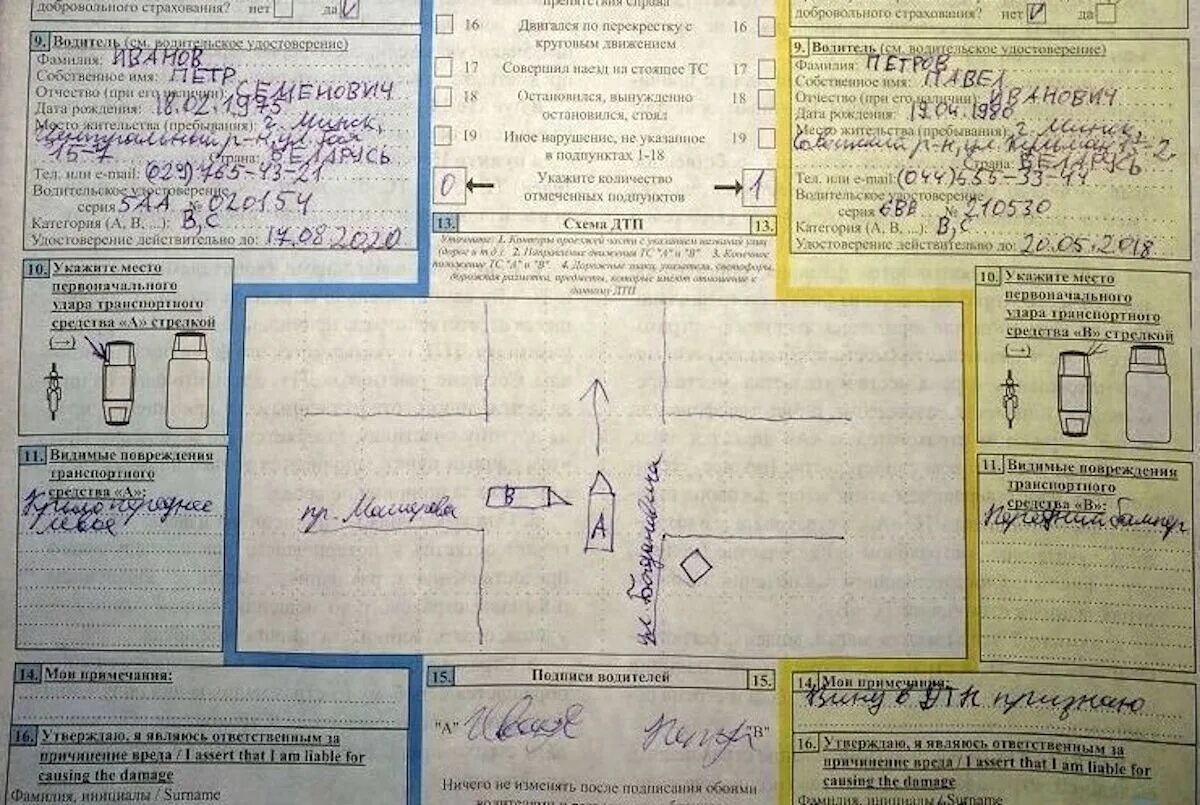 добровольного страхования? нет да V
9. Водитель (см. водительское удостоверение)
Фамилия: ИВАНОВ
Собственное имя: ПЕТР
Отчество (при его наличии): СЕМЕНОВИЧ
Дата рождения: 18.02.1975
Место жительства (пребывания): г. Минск,
Центральный р-н, ул.
15-7 Страна: БЕЛАРУСЬ
Тел. или e-mail: (029) 765-43-21
Водительское удостоверение
серия 5АА № 020154
Категория (А, В, ...): В,С
Удостоверение действительно до: 17.08.2020
10. Укажите место
первоначального
удара транспортного
средства «А» стрелкой
(→)
11. Видимые повреждения
транспортного
средства «А»:
Крыло переднее
левое
14. Мои примечания:
16. Утверждаю, я являюсь ответственным за
причинение вреда / I assert that I am liable for
causing the damage
Фамилия, инициалы / Surname
препятствия справа
16 Двигался по перекрестку с 16
круговым движением
17 Совершил наезд на стоящее ТС 17
18 Остановился, вынужденно 18
остановился, стоял
19 Иное нарушение, не указанное 19
в подпунктах 1-18
0 ← Укажите количество → 1
отмеченных подпунктов
13. Схема ДТП 13.
Уточните: 1. Контуры проезжей части с указанием названия улиц
(дорог и т.д.) 2. Направление движения ТС "А" и "В". 3. Конечное
положение ТС "А" и "В". 4. Дорожные знаки, указатели, светофоры,
дорожная разметка, предметы, которые имеют отношение к
данному ДТП
пр. Машерова
В
А
ул. Богдановича
15. Подписи водителей 15.
"А" "В"
Ничего не изменять после подписания обоими
добровольного страхования? нет V да
9. Водитель (см. водительское удостоверение)
Фамилия: ПЕТРОВ
Собственное имя: ПАВЕЛ
Отчество (при его наличии): ИВАНОВИЧ
Дата рождения: 19.04.1980
Место жительства (пребывания): г. Минск,
Советский р-н, ул. 17-2
Страна: БЕЛАРУСЬ
Тел. или e-mail: (044) 655-33-44
Водительское удостоверение
серия 6ВЕ № 210530
Категория (А, В, ...): В,С
Удостоверение действительно до: 20.05.2018
10. Укажите место
первоначального
удара транспортного
средства «В» стрелкой
(→)
11. Видимые повреждения
транспортного
средства «В»:
Передний бампер
14. Мои примечания:
Вину в ДТП признаю
16. Утверждаю, я являюсь ответственным за
причинение вреда / I assert that I am liable for
causing the damage
Фамилия, инициалы / Surname